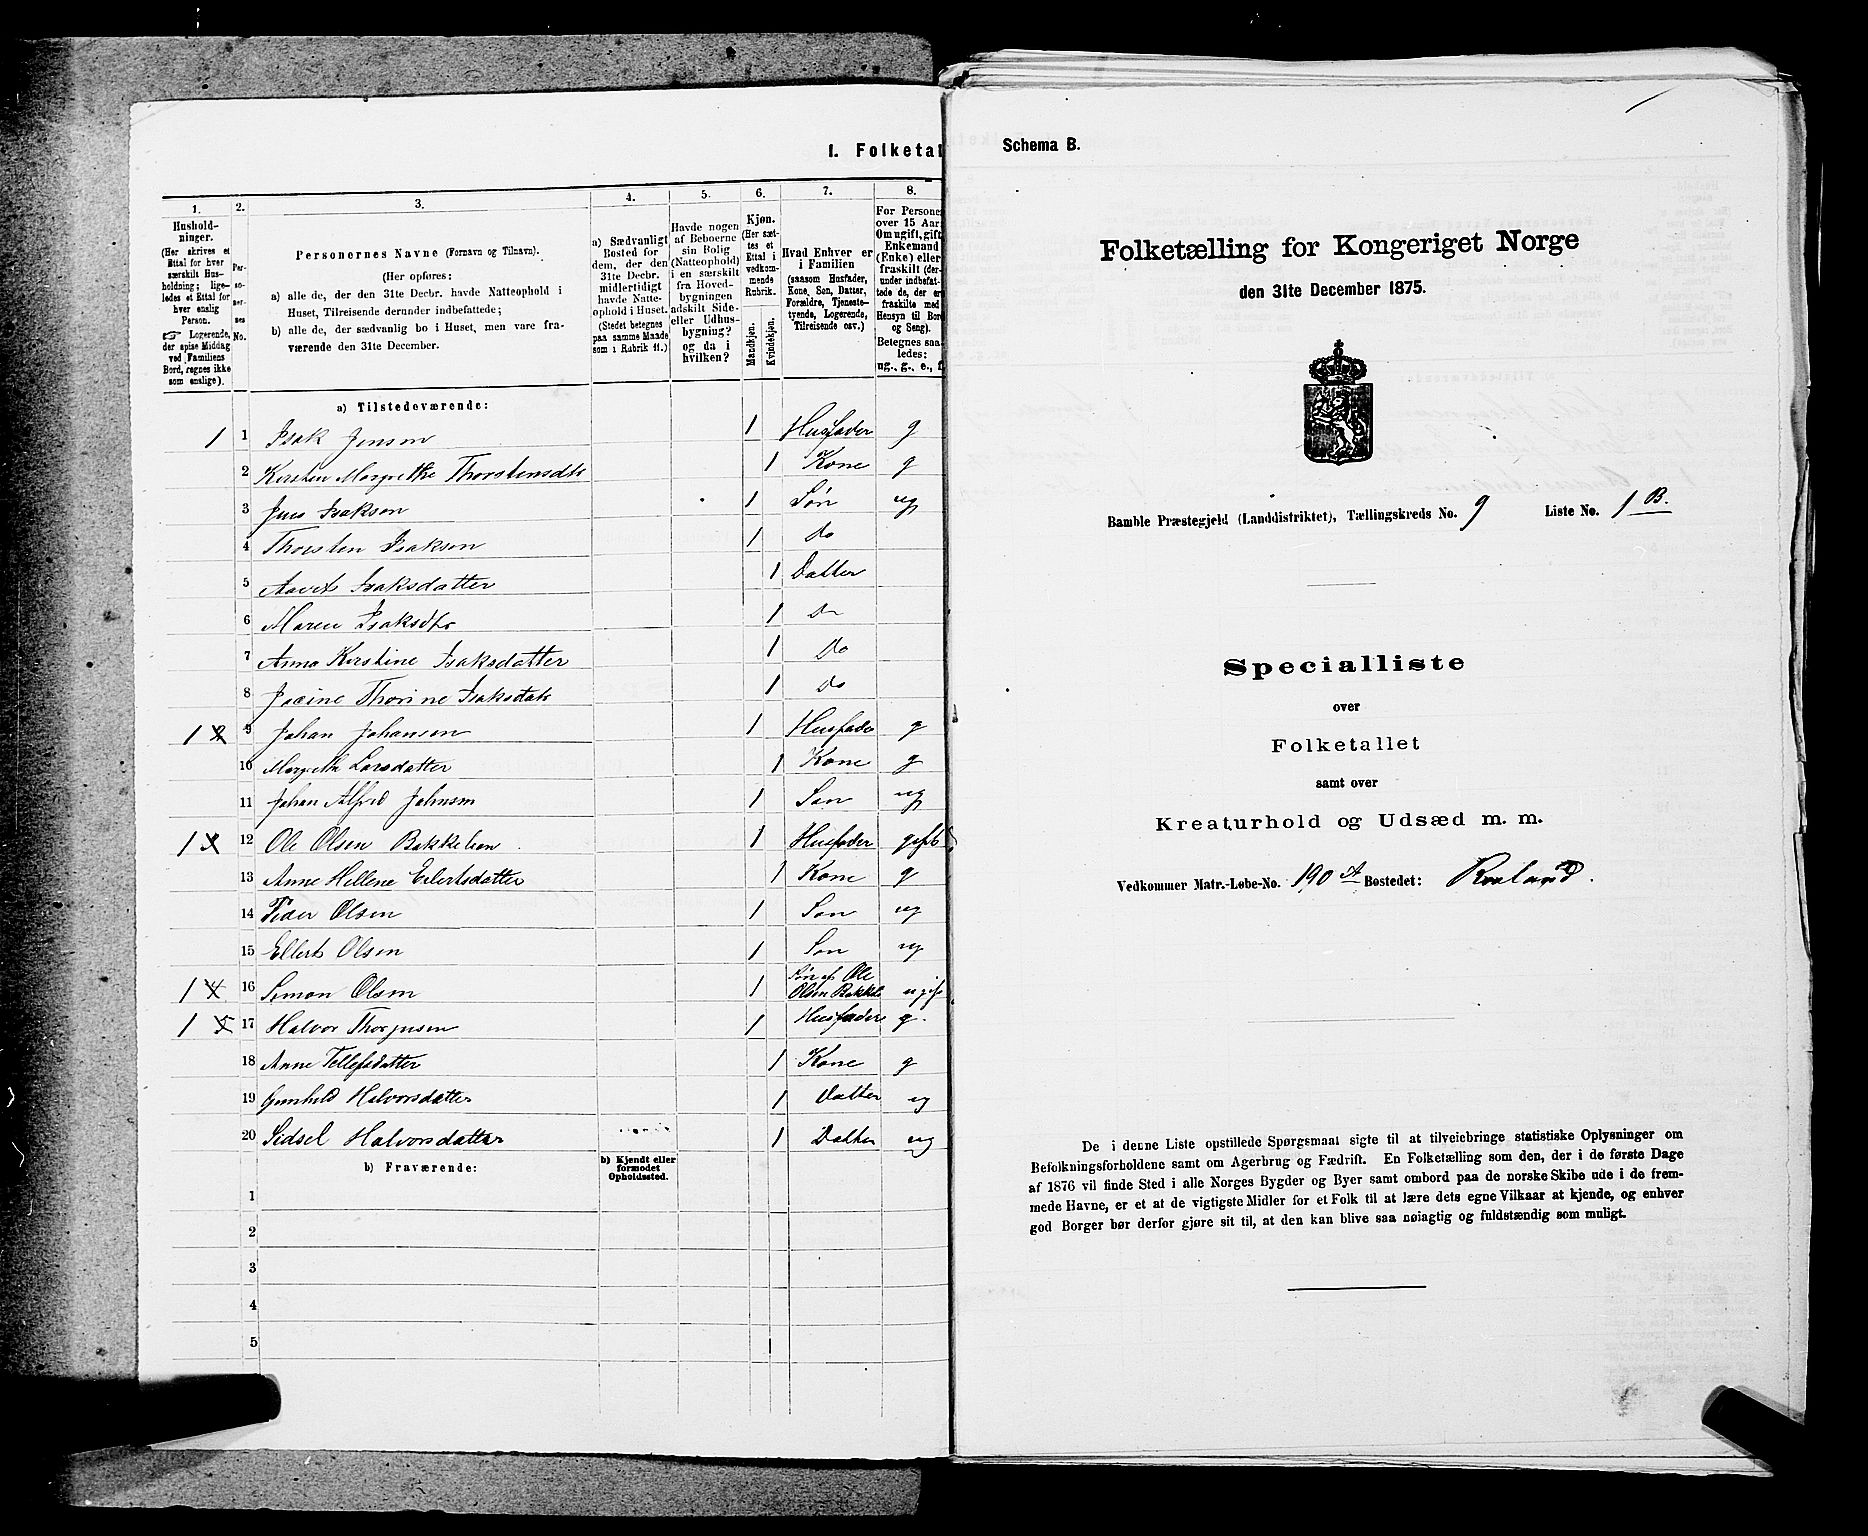 I. Folketal
1.
Hushold-
ninger.
(Her skrives et
Ettal for hver
særskilt Hus-
holdning; lige-
ledes et Ettal for
hver enslig
Person.
☞ Logerende,
der spise Middag
ved Familiens
Bord, regnes ikke
som enslige).
2.
Per-
so-
ner-
nes
No.
3.
Personernes Navne (Fornavn og Tilnavn).
(Her opføres:
a) alle de, der den 31te Decbr. havde Natteophold i
Huset, Tilreisende derunder indbefattede;
b) alle de, der sædvanlig bo i Huset, men vare fra-
værende den 31te December.
4.
a) Sædvanligt
Bosted for
dem, der den
31te Decbr.
midlertidigt
havde Natte-
ophold i Huset.
(Stedet betegnes
paa samme Maade
som i Rubrik 11.)
5.
Havde nogen
af Beboerne
sin Bolig
(Natteophold)
i en særskilt
fra Hoved-
bygningen
adskilt Side-
eller Udhus-
bygning?
og da i
hvilken?
6.
Kjøn.
(Her sæt-
tes et
Ettal i
vedkom-
mende
Rubrik.
Mandkjøn.
Kvindekjøn.
7.
Hvad Enhver er
i Familien
(saasom Husfader,
Kone, Søn, Datter,
Forældre, Tjeneste-
tyende, Logerende,
Tilreisende osv.)
8.
For Persone
over 15 Aar
Om ugift, gift
Enkemand
(Enke) eller
fraskilt (der-
under indbefat-
tede de, der er
fraskilte med
Hensyn til Bord
og Seng).
Betegnes saa
ledes:
ug., g., e., f.
a) Tilstedeværende:
1 1 Isak Jensen 1 Husfader g
2 Kirsten Margrethe Thorstensdtr 1 Kone g
3 Jens Isaksen 1 Søn ug
4 Thorsten Isaksen 1 Do
5 Isaksdatter 1 Datter
6 Maren Isaksdtr 1 Do
7 Anna Kirstine Isaksdatter 1 Do
8 Thorine Isaksdatr 1 Do
1 2 9 Johan Johansen 1 Husfader g
10 Margreth Larsdatter 1 Kone g
11 Johan Alfred Johnsen 1 Søn ug
1 3 12 Ole Olsen Bakkelien. 1 Husfader gift
13 Anne Hellene Eilertsdatter 1 Kone g
14 Peder Olsen 1 Søn ug
15 Ellert Olsen 1 Søn ug
1 4 16 Simon Olsen 1 Søn af Ole
Olsen Bakkel. ugift
1 5 17 Halvor Thorgusen 1 Husfader g.
18 Anne Tellefsdatter 1 Kone g
19 Gunhild Halvorsdatter 1 Datter ug
20 Sidsel Halvorsdatter 1 Datter ug
b) Fraværende:
b) Kjendt eller
formodet
Opholdssted.
1
2
3
4
5
Schema B.
Folketælling for Kongeriget Norge
den 31te December 1875.
Bamble Præstegjeld (Landdistriktet), Tællingskreds No. 9 Liste No. 1 B.
Specialliste
over
Folketallet
samt over
Kreaturhold og Udsæd m. m.
Vedkommer Matr.-Løbe-No. 190 A Bostedet: Roland.
De i denne Liste opstillede Spørgsmaal sigte til at tilveiebringe statistiske Oplysninger om
Befolkningsforholdene samt om Agerbrug og Fædrift. En Folketælling som den, der i de første Dage
af 1876 vil finde Sted i alle Norges Bygder og Byer samt ombord paa de norske Skibe ude i de frem-
mede Havne, er et af de vigtigste Midler for et Folk til at lære dets egne Vilkaar at kjende, og enhver
god Borger bør derfor gjøre sit til, at den kan blive saa nøiagtig og fuldstændig som muligt.